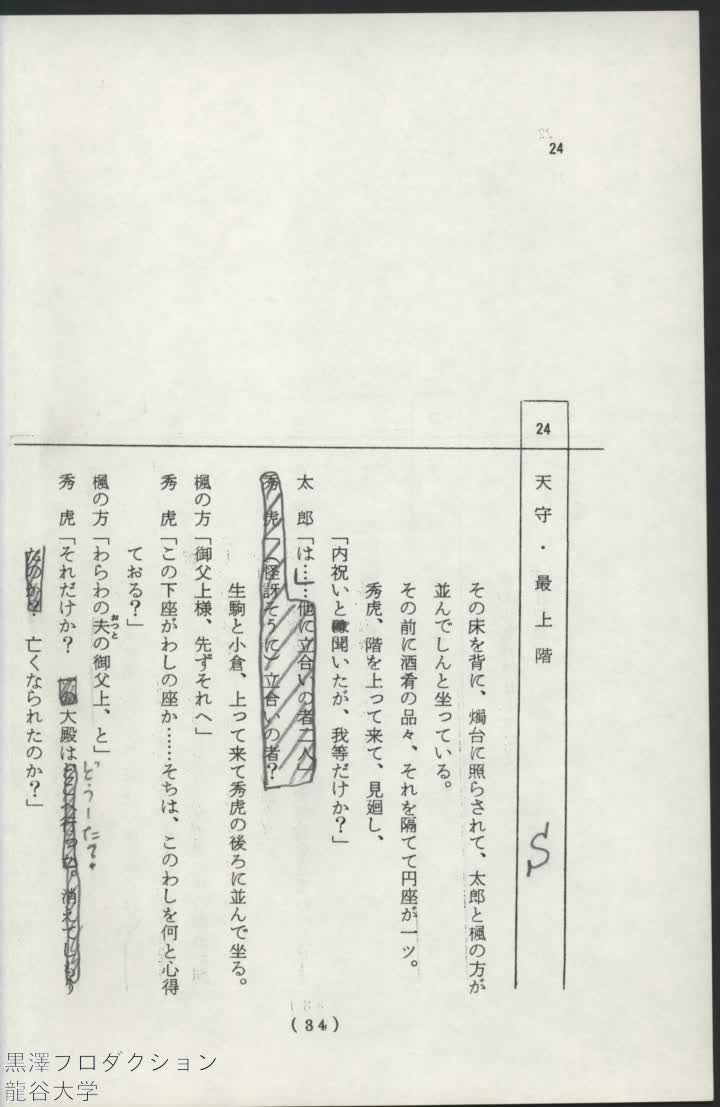 24
24
天守・最上階
S
その床を背に、燭台に照らされて、太郎と楓の方が
並んでしんと坐っている。
その前に酒肴の品々、それを隔てて円座が一ツ。
秀虎、階を上って来て、見廻し、
「内祝いと聞いたが、我等だけか?」
太郎「は……他に立合いの者二人」
秀虎「(怪訝そうに)立合いの者?」
生駒と小倉、上って来て秀虎の後ろに並んで坐る。
楓の方「御父上様、先ずそれへ」
秀虎「この下座がわしの座か……そちは、このわしを何と心得
ておる?」
楓の方「わらわの夫の御父上、と」
おっと
どうーた?
秀虎「それだけか? の大殿はどこへ行った。消えてしもう
たのか? 亡くなられたのか?」
(34)
黒澤プロダクション
龍谷大学